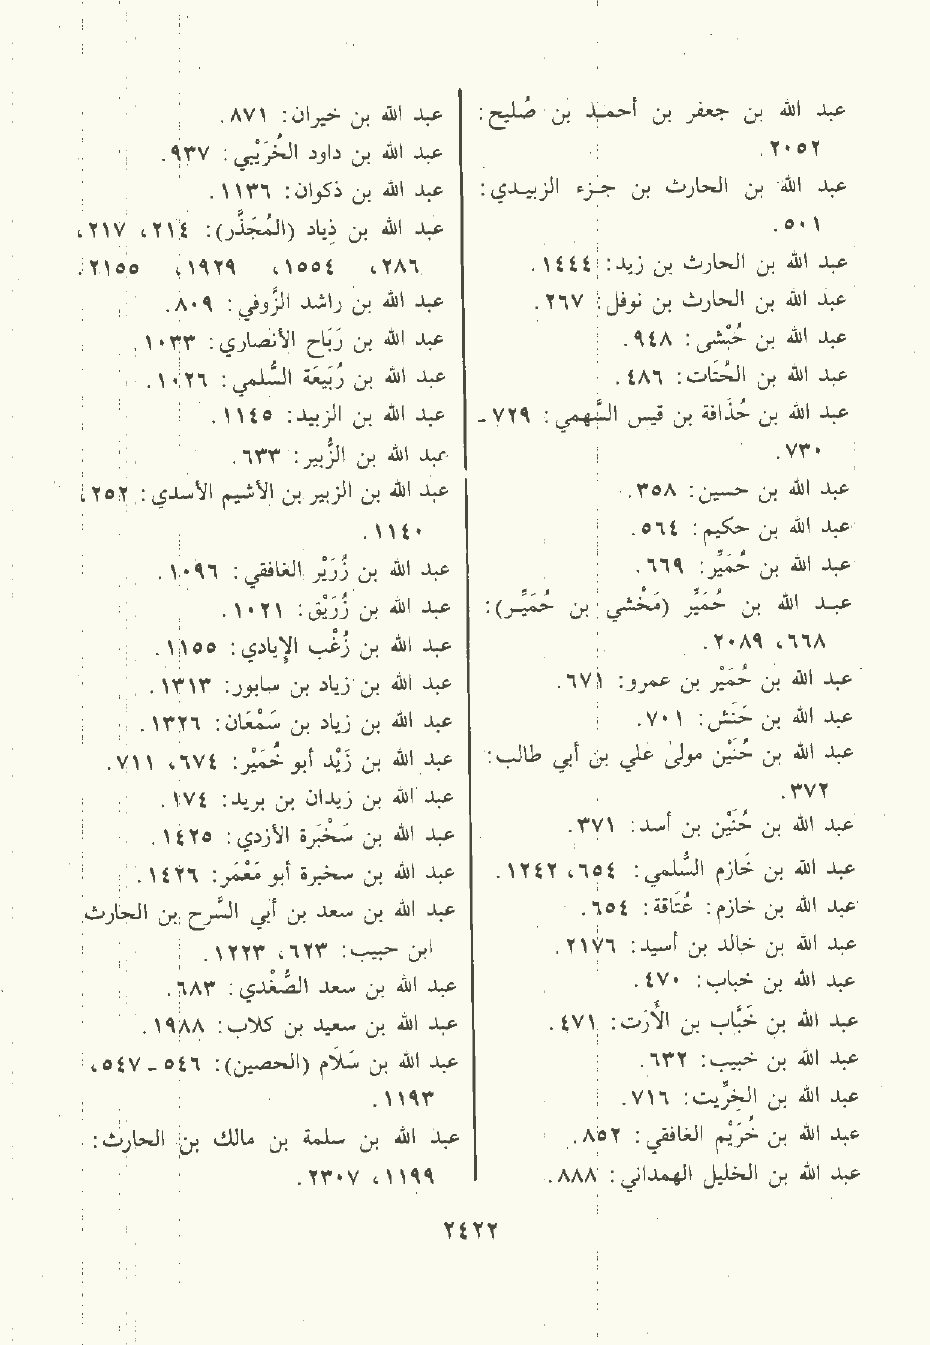 عبد الله بن جعفر بن أحمـد بن صُليح:
٢٠٥٢.
عبد الله بن الحارث بن جـزء الزبيـدي:
٥٠١.
عبد الله بن الحارث بن زيد: ١٤٤٤.
عبد الله بن الحارث بن نوفل: ٢٦٧.
عبد الله بن حُبْشى: ٩٤٨.
عبد الله بن الحُتَات: ٤٨٦.
عبد الله بن حُذَافة بن قيس السَّهمي: ٧٢٩ ـ
٧٣٠.
عبد الله بن حسين: ٣٥٨.
عبد الله بن حكيم: ٥٦٤.
عبد الله بن حُمَيِّر: ٦٦٩.
عبـد الله بن حُمَيِّر (مَخْشي بن حُمَيِّـر):
٦٦٨، ٢٠٨٩.
عبد الله بن حُمَيْر بن عمرو: ٦٧١.
عبد الله بن حَنَش: ٧٠١.
عبد الله بن حُنَيْن مولىٰ علي بن أبي طالب:
٣٧٢.
عبد الله بن حُنَيْن بن أسد: ٣٧١.
عبد الله بن خَازم السُّلمي: ٦٥٤، ١٢٤٢.
عبد الله بن خازم: عُتَاقة: ٦٥٤.
عبد الله بن خالد بن أسيد: ٢١٧٦.
عبد الله بن خباب: ٤٧٠.
عبد الله بن خَبَّاب بن الأَرَت: ٤٧١.
عبد الله بن خبيب: ٦٣٢.
عبد الله بن الخِرِّيت: ٧١٦.
عبد الله بن خُرَيْم الغافقي: ٨٥٢.
عبد الله بن الخليل الهمداني: ٨٨٨.
عبد الله بن خيران: ٨٧١.
عبد الله بن داود الخُرَيْبي: ٩٣٧.
عبد الله بن ذكوان: ١١٣٦.
عبد الله بن ذِياد (المُجَذَّر): ٢١٤، ٢١٧،
٢٨٦، ١٥٥٤، ١٩٢٩، ٢١٥٥.
عبد الله بن راشد الزَّوفي: ٨٠٩.
عبد الله بن رَبَاح الأنصاري: ١٠٣٣.
عبد الله بن رُبَيعَة السُّلمي: ١٠٢٦.
عبد الله بن الزبيد: ١١٤٥.
عبد الله بن الزُّبير: ٦٣٣.
عبد الله بن الزبير بن الأشيم الأسدي: ٢٥٢،
١١٤٠.
عبد الله بن زُرَيْر الغافقي: ١٠٩٦.
عبد الله بن زُرَيْق: ١٠٢١.
عبد الله بن زُغْب الإيادي: ١١٥٥.
عبد الله بن زياد بن سابور: ١٣١٣.
عبد الله بن زياد بن سَمْعَان: ١٣٢٦.
عبد الله بن زَيْد أبو خُمَيْر: ٦٧٤، ٧١١.
عبد الله بن زيدان بن بريد: ١٧٤.
عبد الله بن سَخْبَرة الأزدي: ١٤٢٥.
عبد الله بن سخبرة أبو مَعْمَر: ١٤٢٦.
عبد الله بن سعد بن أبي السَّرح بن الحارث
ابن حبيب: ٦٢٣، ١٢٢٣.
عبد الله بن سعد الصُّغْدي: ٦٨٣.
عبد الله بن سعيد بن كلاب: ١٩٨٨.
عبد الله بن سَلَام (الحصين): ٥٤٦ ـ ٥٤٧،
١١٩٣.
عبد الله بن سلمة بن مالك بن الحارث:
١١٩٩، ٢٣٠٧.
٢٤٢٢